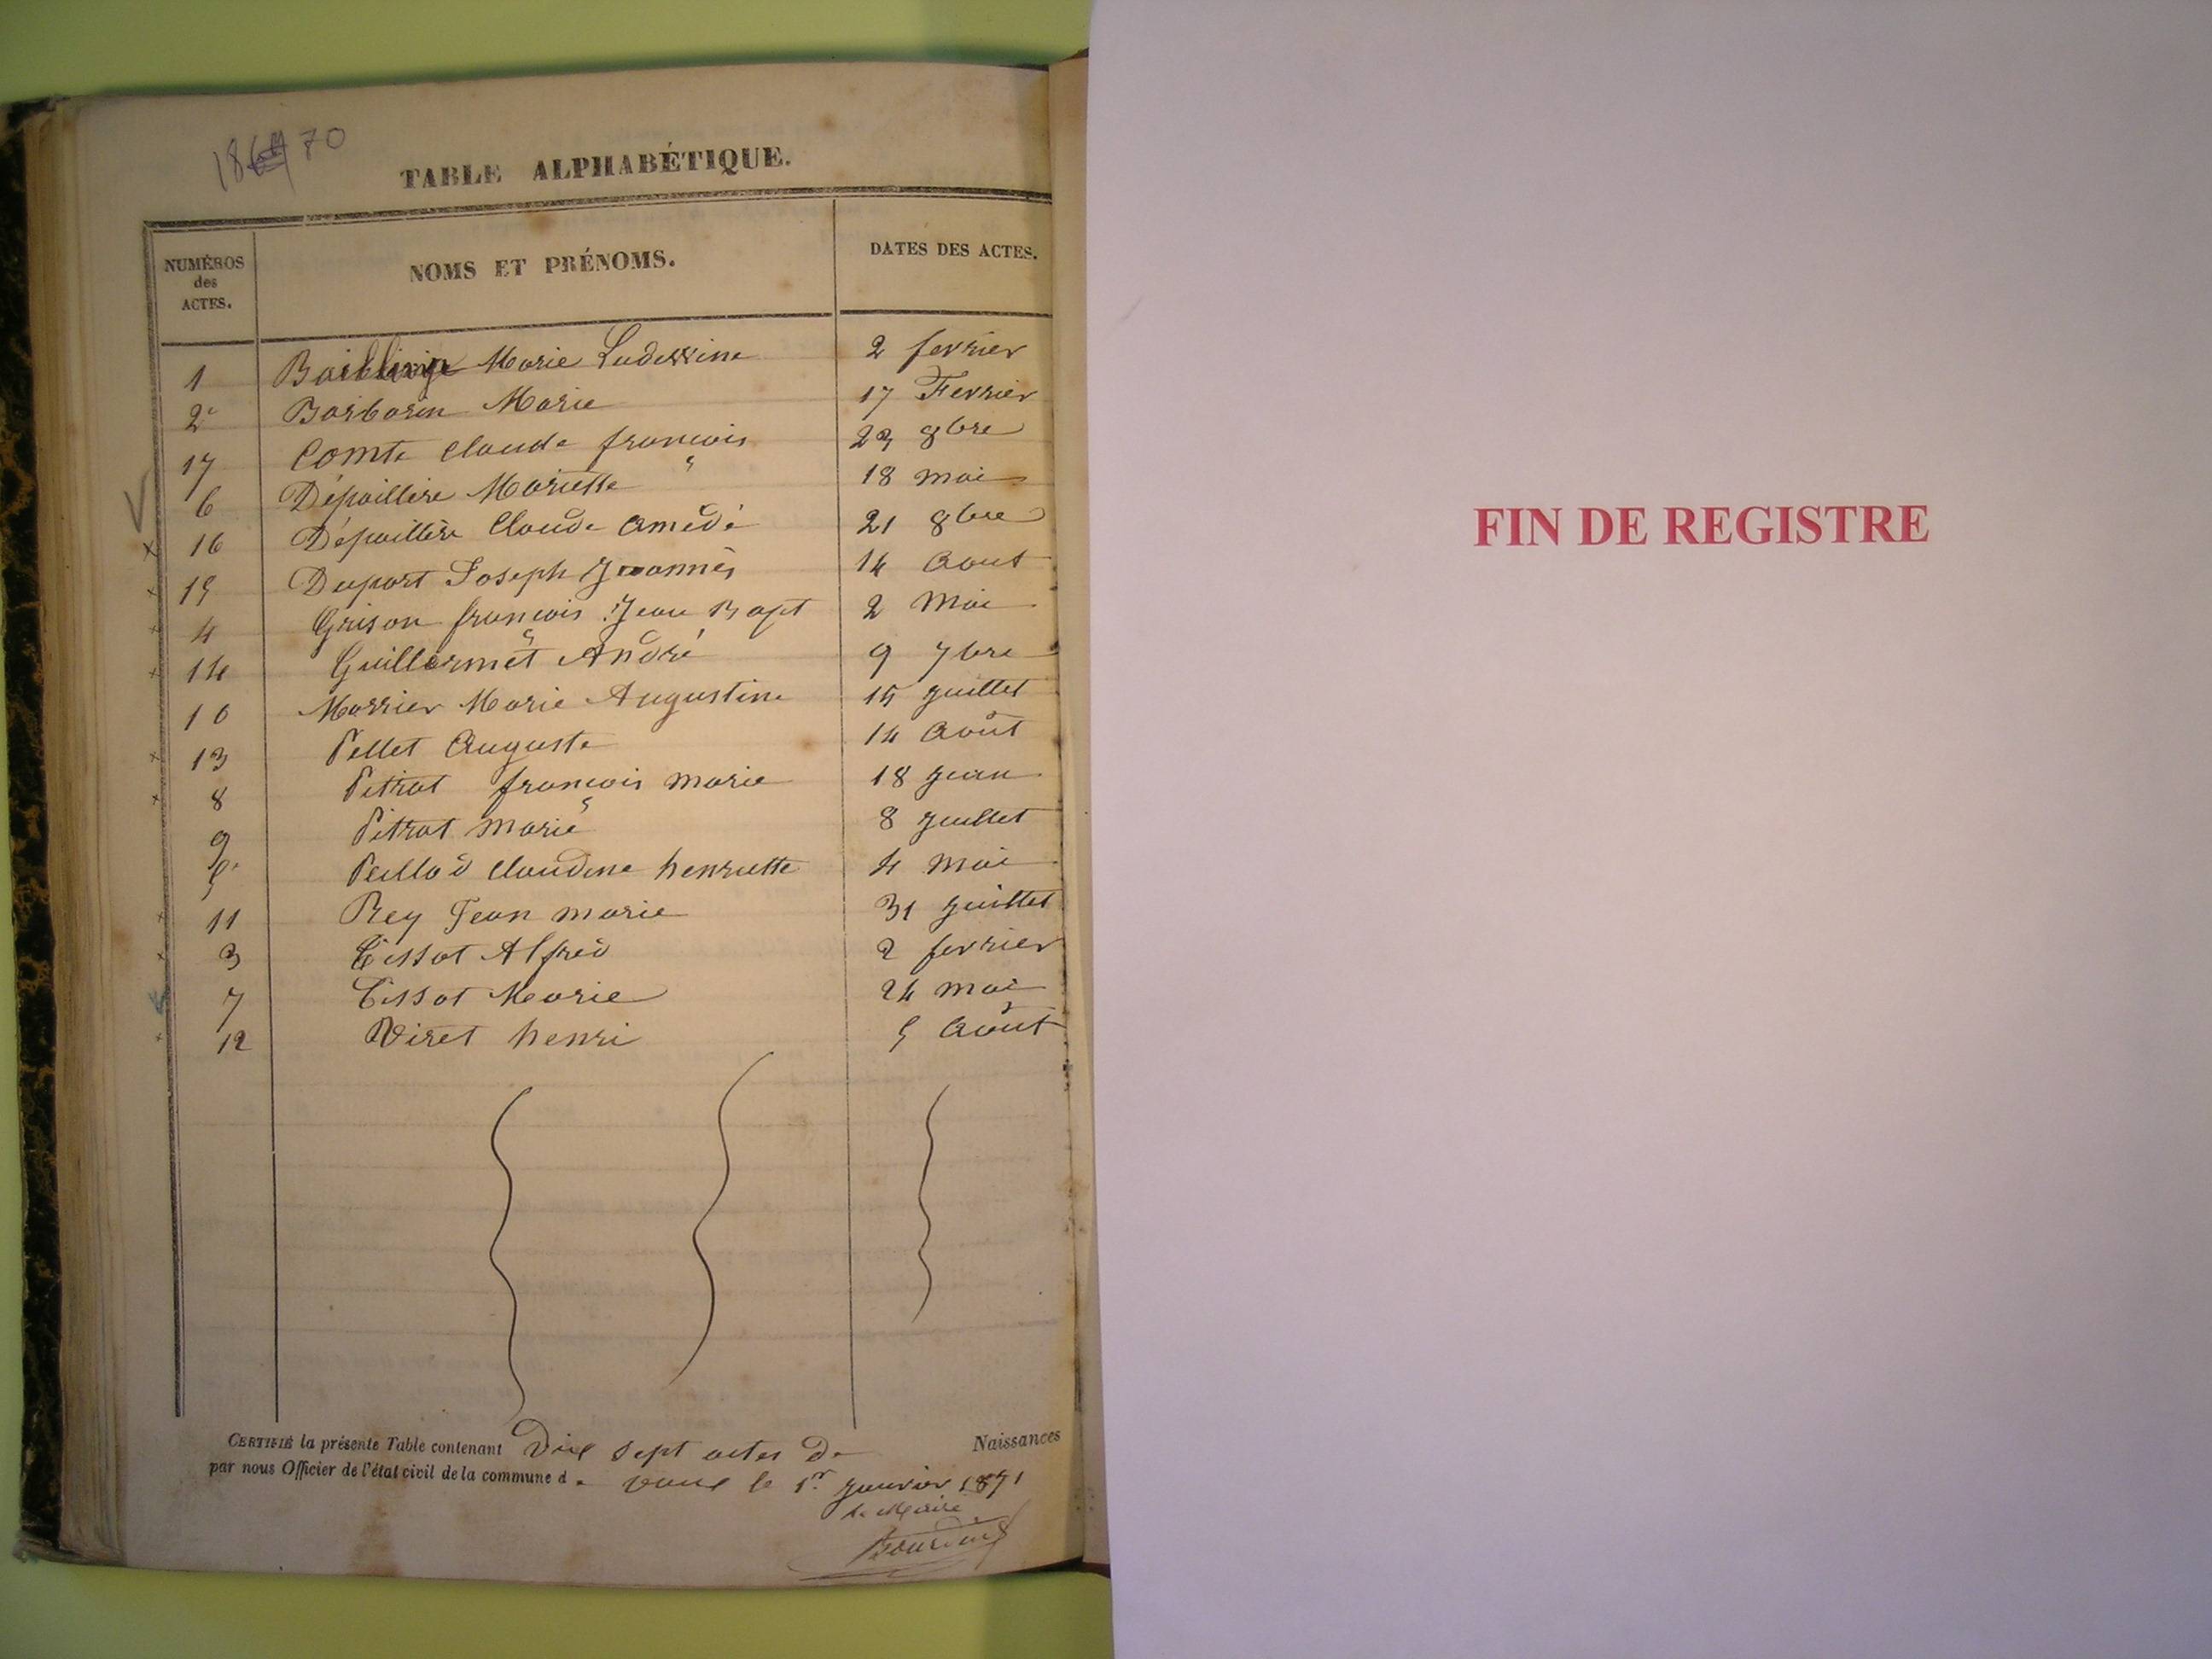 1869 70
TABLE ALPHABÉTIQUE.
NUMÉROS des ACTES. NOMS ET PRÉNOMS. DATES DES ACTES.
1 Marie 2 fevrier
2 Barbarin Marie 17 Fevrier
17 Comte Claude françois 23 8bre
6 Dépaillère Mariette 18 mai
16 Dépaillère Claude Amédé 21 8bre
15 Duport Joseph Joannès 14 Aout
4 Grison françois Jean Bapt 2 Mai
14 Guillermet André 9 7bre
10 Marrier Marie Augustine 15 juillet
13 Pellet Auguste 14 Août
8 Petrat françois marie 18 juin
9 Petrat marie 8 juillet
5 Peillod Claudine henriette 4 mai
11 Rey Jean marie 31 juillet
3 Tissot Alfred 2 fevrier
7 Tissot Marie 24 mai
12 Viret henri 5 Août
CERTIFIÉ la présente Table contenant Dix sept actes de Naissances
par nous Officier de l'état civil de la commune de le 1er janvier 1871
le Maire
FIN DE REGISTRE